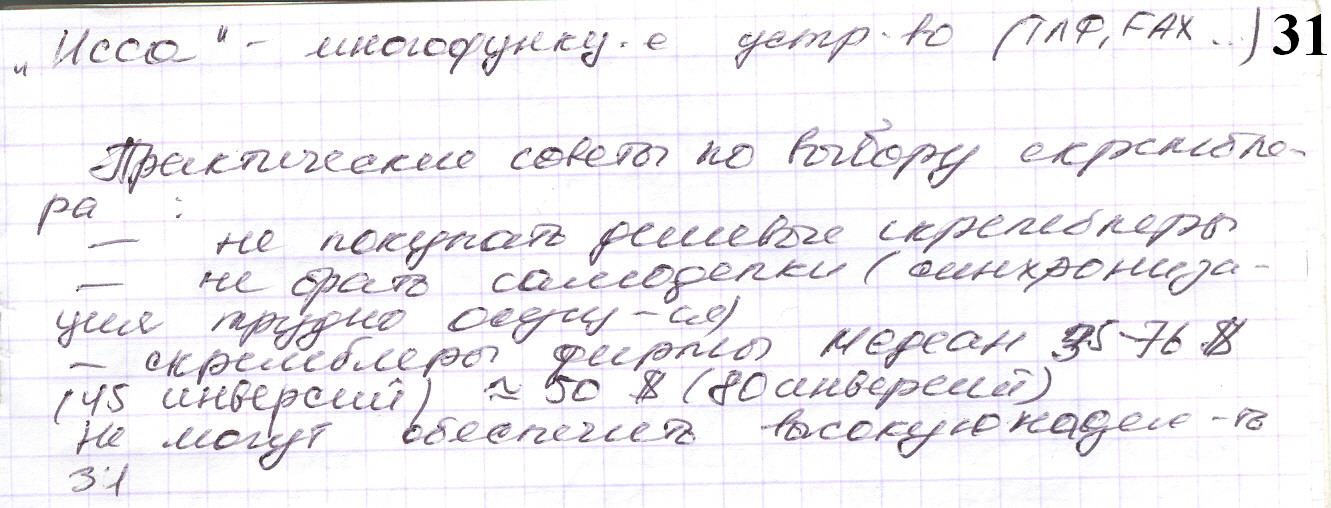 „Исса" - многофункц.е устр-во (ТЛФ, FAX ...) 31
Практические советы по выбору скрембле-
ра :
— не покупать дешевые скремблеры
— не брать самоделки (синхрониза-
ция трудно осущ-ся)
— скремблеры фирмы Медеан 35-76 $
(45 инверсий) ≈ 50 $ (80 инверсий)
не могут обеспечить высокую надеж-ть
31